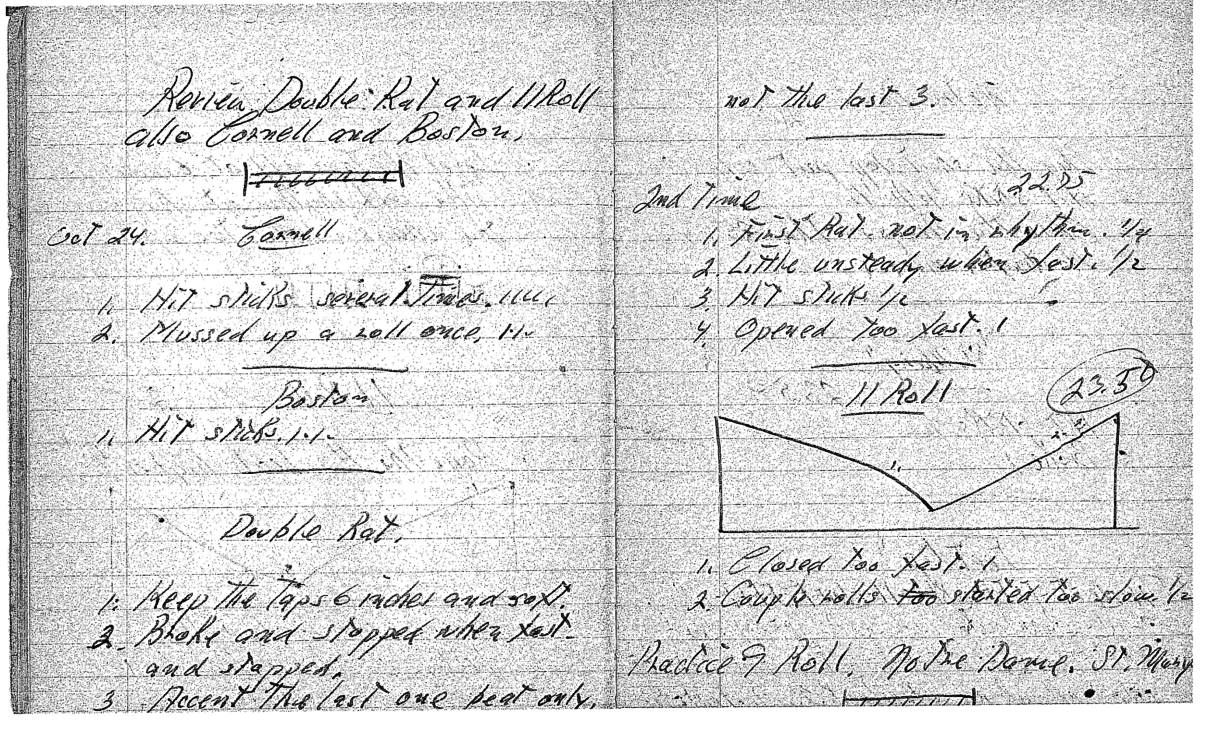 Review Double Rat and 11 Roll
also Cornell and Boston.
Oct 24. Cornell
1. Hit sticks several Times. 1.1.1.1.
2. Mussed up a roll once. 1.1.
Boston
1. Hit sticks. 1.1.
Double Rat.
1. Keep the Taps 6 inches and soft.
2. Broke and stopped when fast
and stopped.
3 Accent the last one beat only,
not the last 3.
2nd Time 22.75
1. First Rat. not in rhythm. 1/4
2. Little unsteady when fast. 1/2
3. Hit sticks 1/2
4. Opened Too fast. 1
11 Roll 23.50
1. Closed Too fast. 1
2. Couple rolls too started too slow 1/2
Practice 9 Roll, Notre Dame, St. Mary